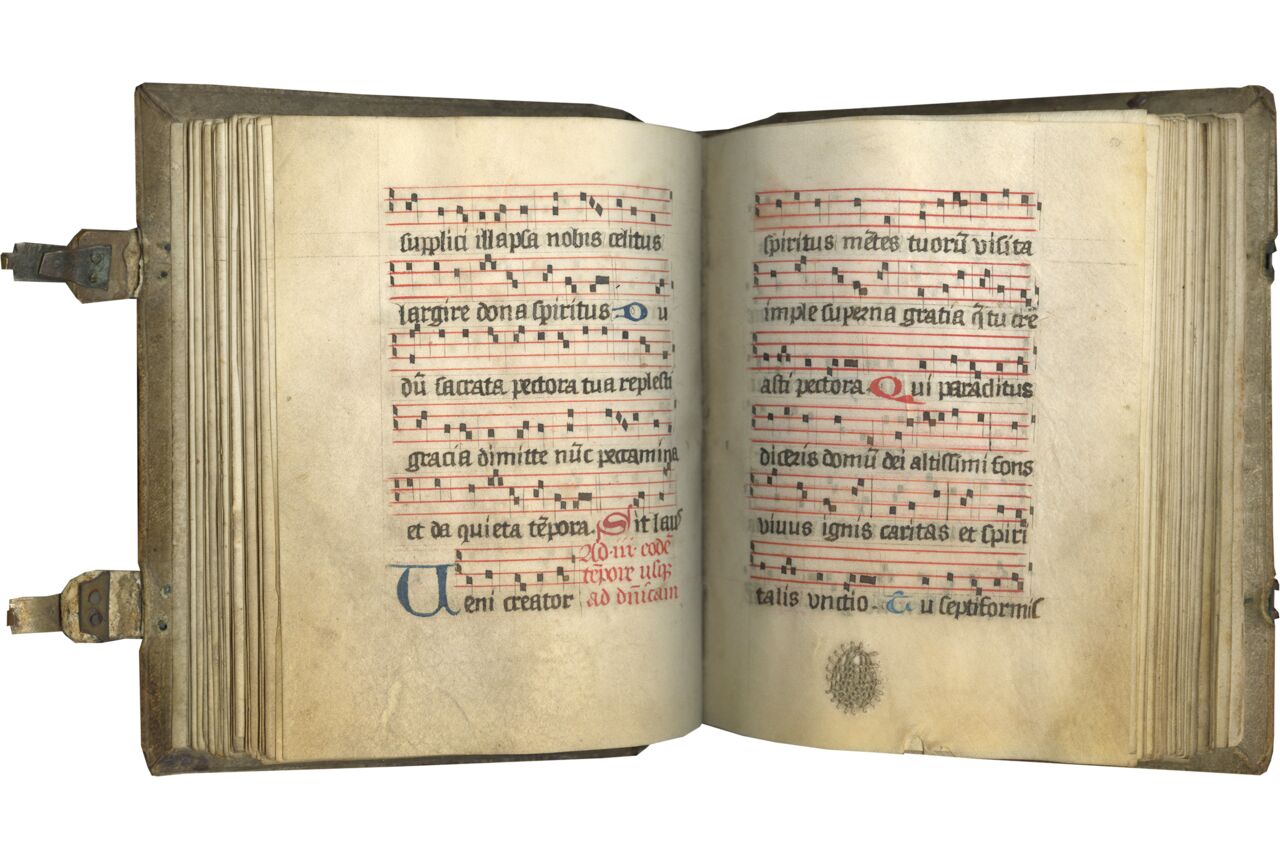 supplici illapsa nobis celitus
largire dona spiritus D u
dū sacrata pectora tua replesti
gracia dimitte nūc peccamina
et da quieta tēpora. Sit laus
Ad iii eodē
tēpore usq
Veni creator ad dn̄icam
spiritus mētes tuorū visita
imple superna gratia q̄ tu cre
asti pectora. Qui paraclitus
diceris domū dei altissimi fons
viuus ignis caritas et spiri
talis vnctio. Tu septiformis